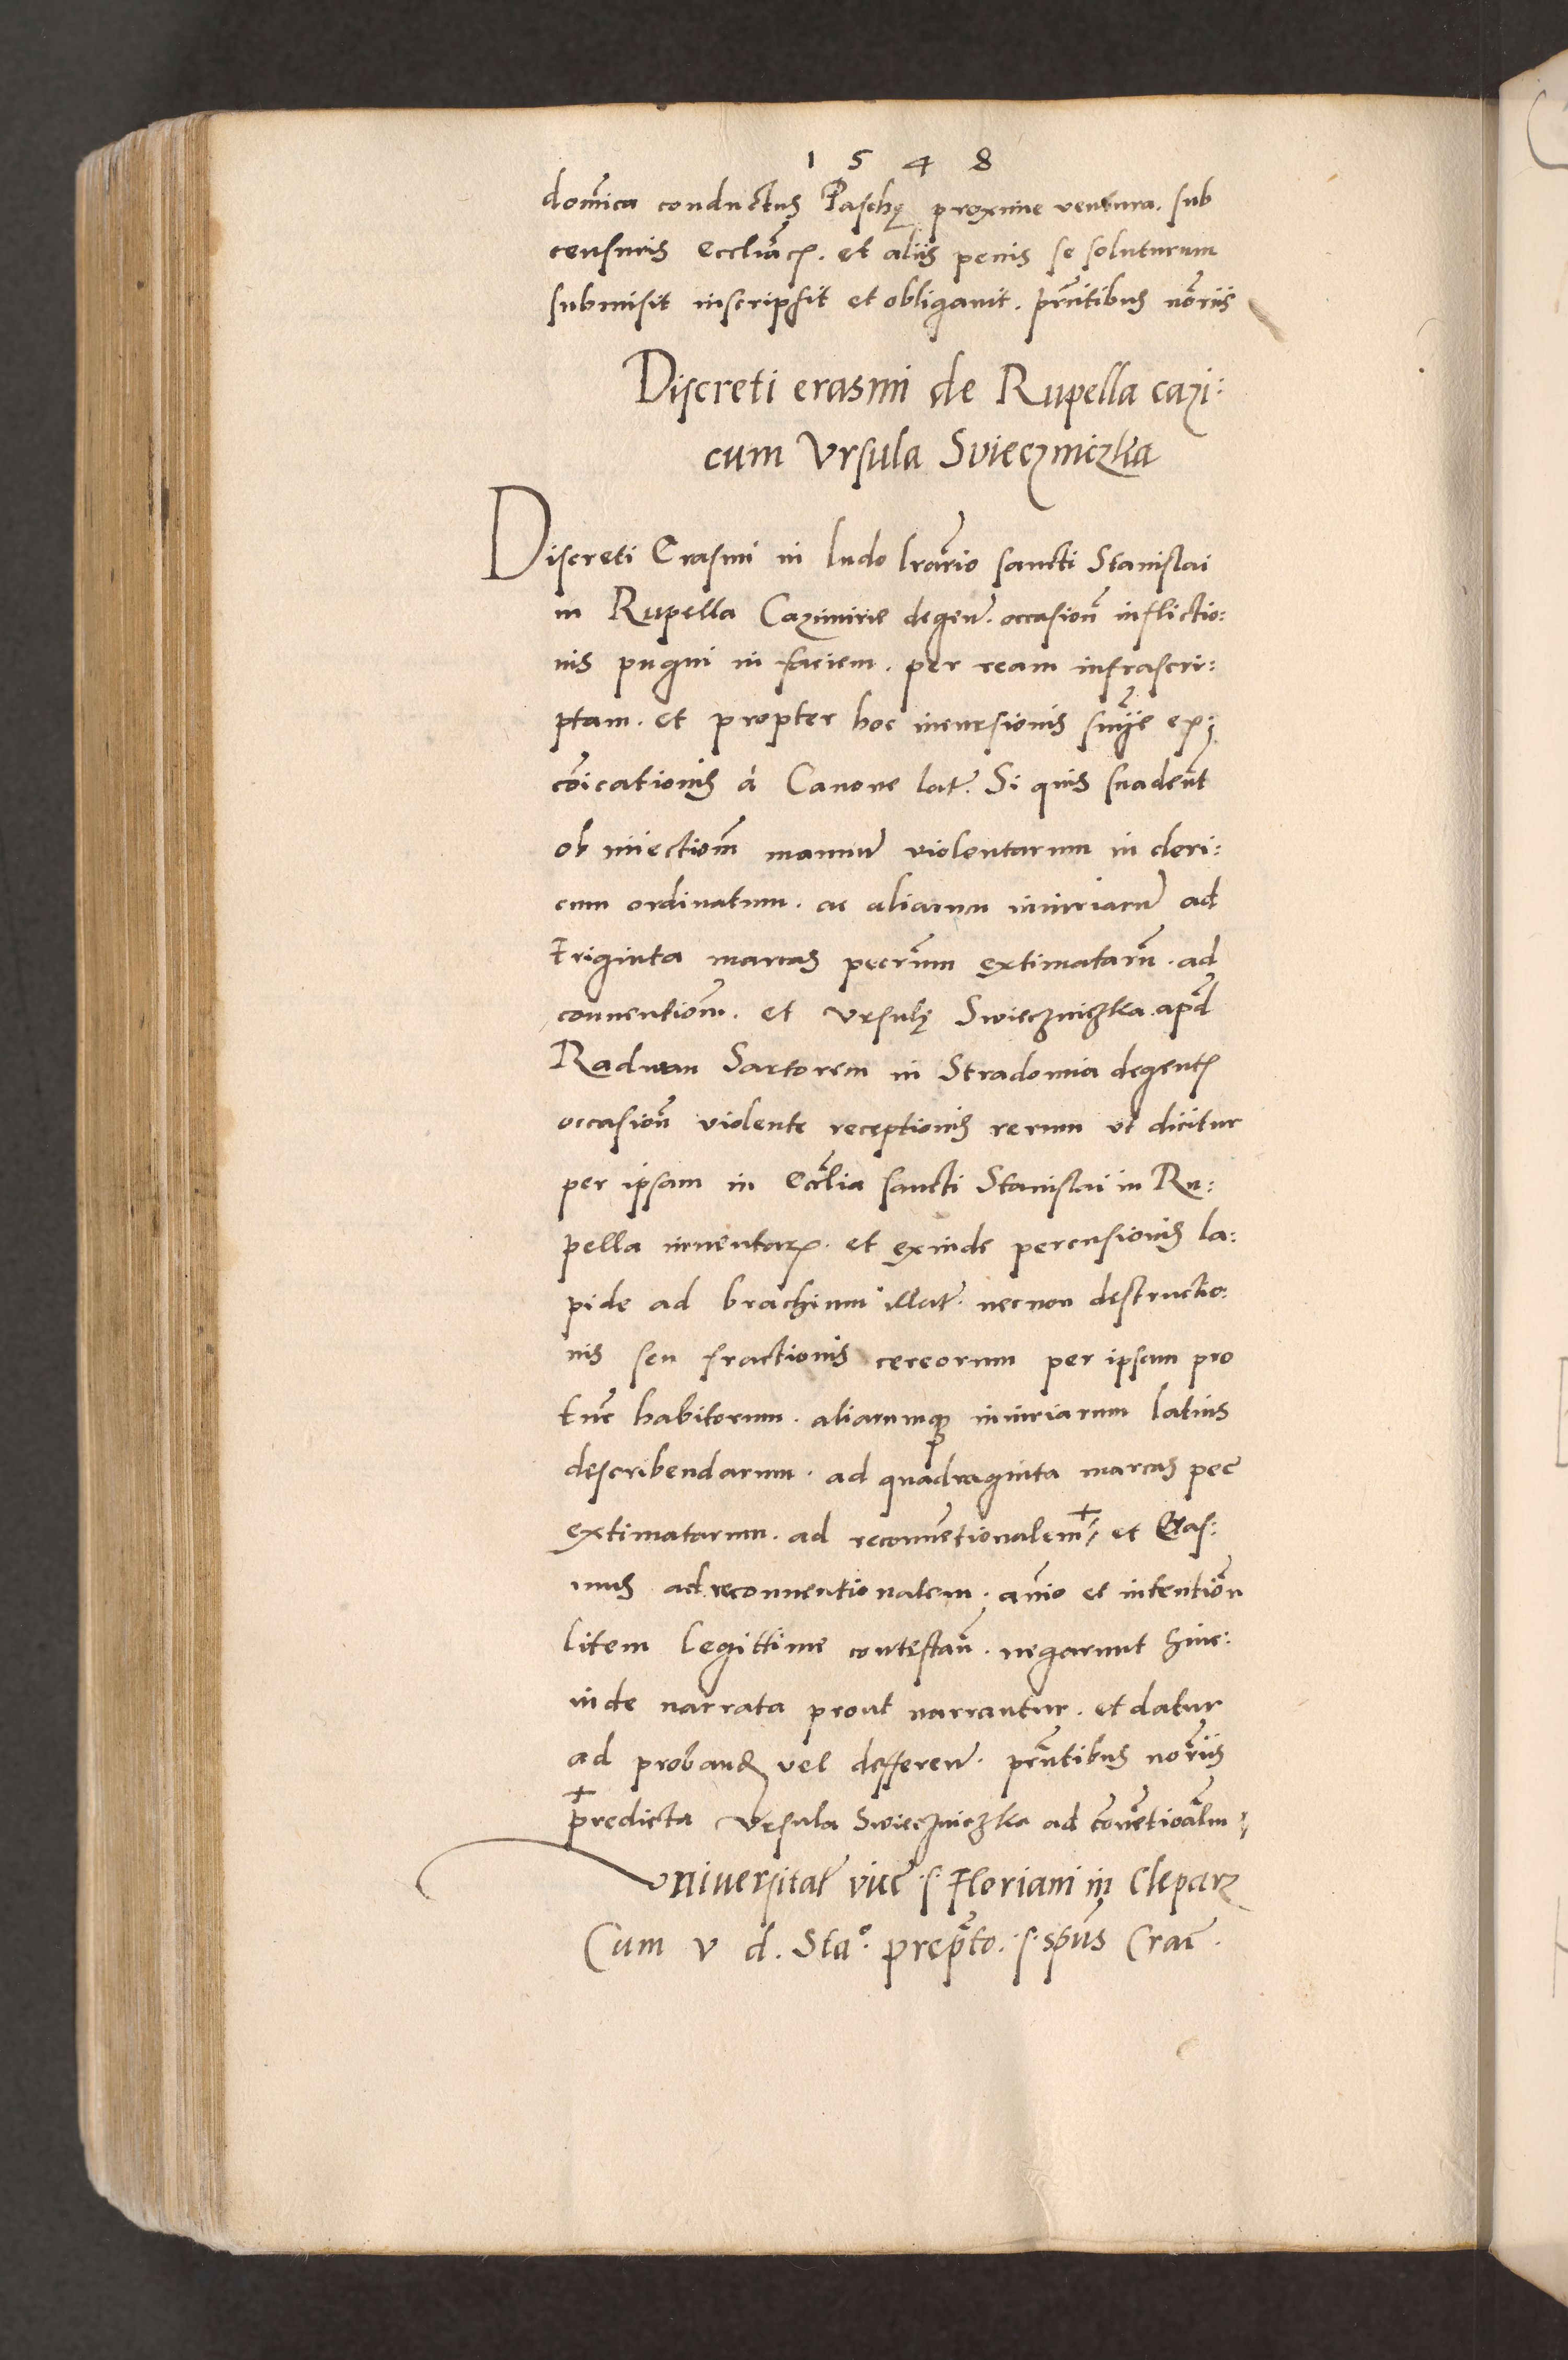 1 5 4 8
dom̃ica conductus Paschę proxime ventura. sub
censuris eccliãcꝭ. et aliis penis se soluturum
submisit inscripsit et obligavit. pr̃ntibus nõriis
Discreti erasmi de Rupella cazi:
cum Vrsula Svieczniczka
Discreti Erasmi in ludo lrãrio sancti Stanislai
in Rupella Cazimirie degen̄. occasioñ inflictio:
nis pugni in faciem. per ream infrascri:
ptam. et propter hoc incursionis sñие ex:
cõicationis à Canone lat̄. Si quis suadeñt
ob iniectioñ manuū violentarum in cleri:
cum ordinatum. ac aliarum iniuriarū ad
triginta marcas pecr̃um extimatarũ. ad
conventioñ. et Vrsulę Swieczniczka. apd̃
Radwan Sartorem in Stradomia degentꝭ
occasioñ violente receptionis rerum ut dicitur
per ipsam in Ecc̃lia sancti Stanislai in Ru:
pella inventarꝝ. et exinde percusionis la:
pide ad brachium illat̄. necnon destructio:
nis seu fractionis cereorum per ipsam pro
tunc̃ habitorum. aliarumqꝫ iniuriarum latius
describendarum. ad quadraginta marcas pec̃
extimatarum. ad reconṽetionalem + et Eras:
mus ad reconventionalem. añio et intentioñ
litem legittime contestañ. negarunt hinc:
inde narrata prout narrantur. et datur
ad proband vel defferen̄. pr̃ntibus nõriis
+ predicta Vrsula Swieczniczka ad cõnṽetioãlm
Vniversitat̄ vic̃ .s. Floriani in Cleparz
Cum v d. Sta°. prep̃to. .s. sp̃us Crac̃.